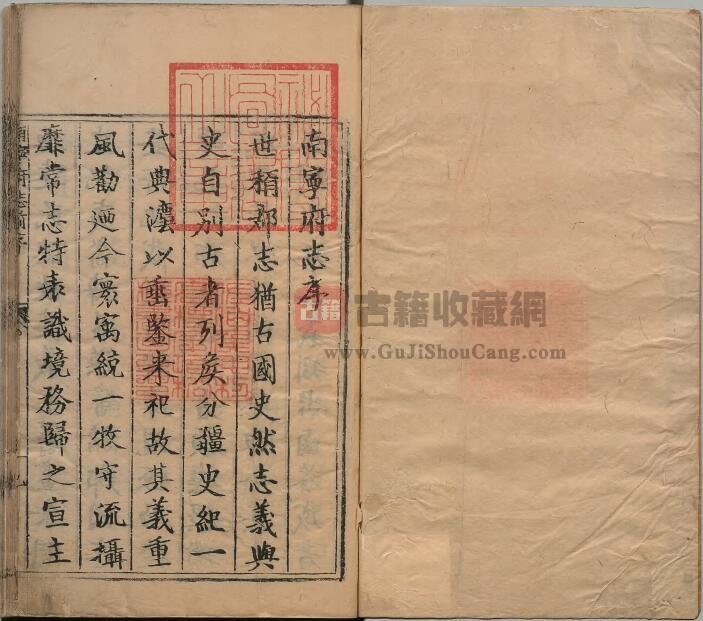 南寧府志序
世稱郡志猶古國史然志義與
史自別古者列矦分疆史紀一
代典灋以垂鑒来祀故其義重
風勸廼今寰㝢統一牧守流攝
靡常志特表識境務歸之宣主
古籍
古籍收藏網
www.GuJiShouCang.com